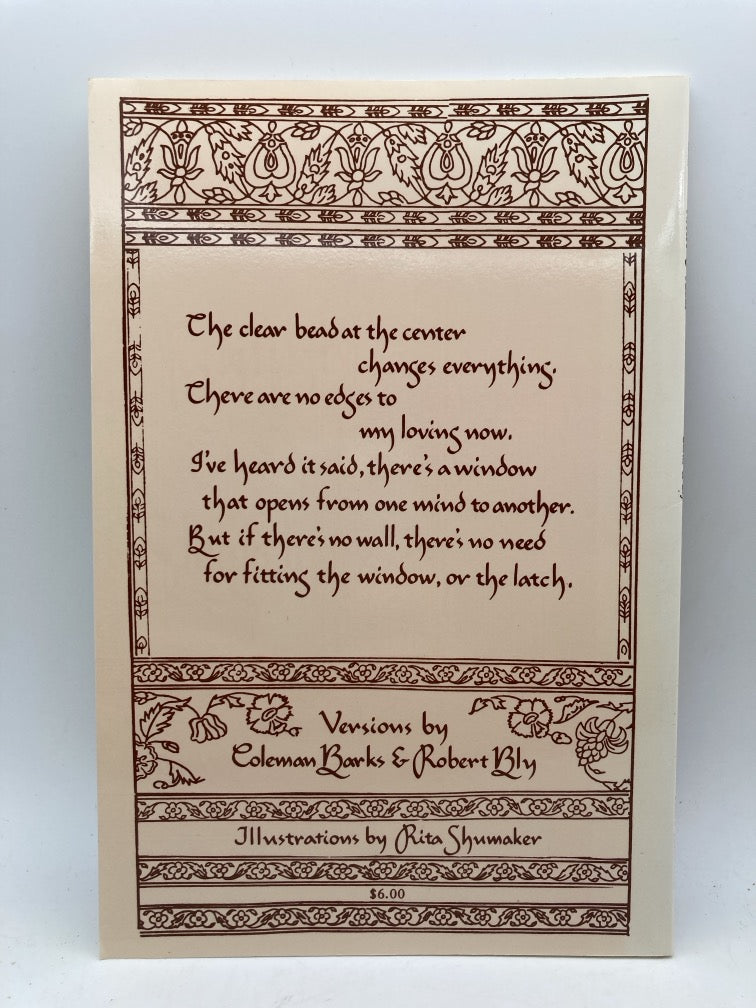 The clear bead at the center
changes everything.
There are no edges to
my loving now.
I've heard it said, there's a window
that opens from one mind to another.
But if there's no wall, there's no need
for fitting the window, or the latch.
Versions by
Coleman Barks & Robert Bly
Illustrations by Rita Shumaker
$6.00